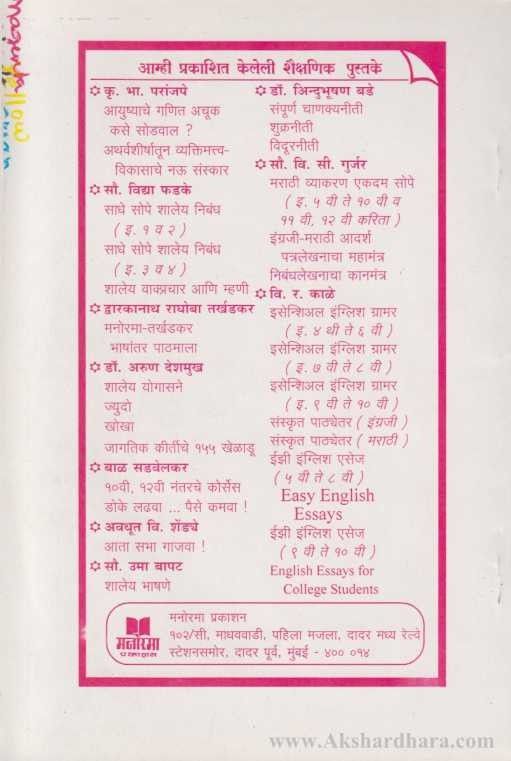 आम्ही प्रकाशित केलेली शैक्षणिक पुस्तके
कृ. भा. परांजपे
आयुष्याचे गणित अचूक
कसे सोडवाल ?
अथर्वशीर्षातून व्यक्तिमत्त्व-
विकासाचे नऊ संस्कार
सौ. विद्या फडके
साधे सोपे शालेय निबंध
( इ. १ व २ )
साधे सोपे शालेय निबंध
( इ. ३ व ४ )
शालेय वाक्प्रचार आणि म्हणी
द्वारकानाथ राघोबा तर्खडकर
मनोरमा-तर्खडकर
भाषांतर पाठमाला
डॉ. अरुण देशमुख
शालेय योगासने
ज्युदो
खोखो
जागतिक कीर्तीचे १५५ खेळाडू
बाळ सडवेलकर
१०वी, १२वी नंतरचे कोर्सेस
डोके लढवा ... पैसे कमवा !
अवधूत वि. शेंड्ये
आता सभा गाजवा !
सौ. उमा बापट
शालेय भाषणे
डॉ. अिन्दुभूषण बडे
संपूर्ण चाणक्यनीती
शुक्रनीती
विदूरनीती
सौ. वि. सी. गुर्जर
मराठी व्याकरण एकदम सोपे
( इ. ५ वी ते १० वी व
११ वी, १२ वी करिता )
इंग्रजी-मराठी आदर्श
पत्रलेखनाचा महामंत्र
निबंधलेखनाचा कानमंत्र
वि. र. काळे
इसेन्शिअल इंग्लिश ग्रामर
( इ. ४ थी ते ६ वी )
इसेन्शिअल इंग्लिश ग्रामर
( इ. ७ वी ते ८ वी )
इसेन्शिअल इंग्लिश ग्रामर
( इ. ९ वी ते १० वी )
संस्कृत पाठ्येतर ( इंग्रजी )
संस्कृत पाठ्येतर ( मराठी )
ईझी इंग्लिश एसेज
( ५ वी ते ८ वी )
Easy English
Essays
ईझी इंग्लिश एसेज
( ९ वी ते १० वी )
English Essays for
College Students
मनोरमा
प्रकाशन
मनोरमा प्रकाशन
१०२/सी, माधववाडी, पहिला मजला, दादर मध्य रेल्वे
स्टेशनसमोर, दादर पूर्व, मुंबई - ४०० ०१४
www.Akshardhara.com